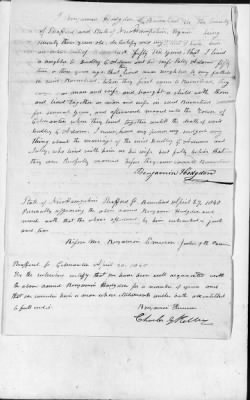 I Benjamin Hodgdon of Barnstead in the County
of Strafford and State of New Hampshire, Again being
seventy three years old, do testify and say that I have been
well acquainted fifty six years, that I lived
a neighbor to Dudley G Adams and his wife Polly Adams fifty
two or three years ago that lived near neighbor to my father
in said Barnstead, when they first came to Barnstead, they
came as man and wife, and brought a child with them
and lived together as man and wife in said Barnstead
for several years, and afterwards moved into the town of
Gilmanton where they lived together until the death of said
Dudley G Adams. I never heard any person say
thing about the marriage of the said Dudley G Adams and
Polly, who lived with him as his wife but fully believe that
they were lawfully married before they ever came to Barnstead
Benjamin Hodgdon
State of New Hampshire Strafford ss. Barnstead April 27, 1840
Personally appearing the above named Benjamin Hodgdon and
made oath that the above affidavit by him subscribed is just
and true
Before me Benjamin Emerson Justice of the Peace
Strafford ss Gilmanton April 30, 1840
We the subscribers certify that we have been well acquainted with
the above named Benjamin Hodgdon for a number of years and
that we consider him a man whose statements under oath are entitled
to full credit
Benjamin
Charles G